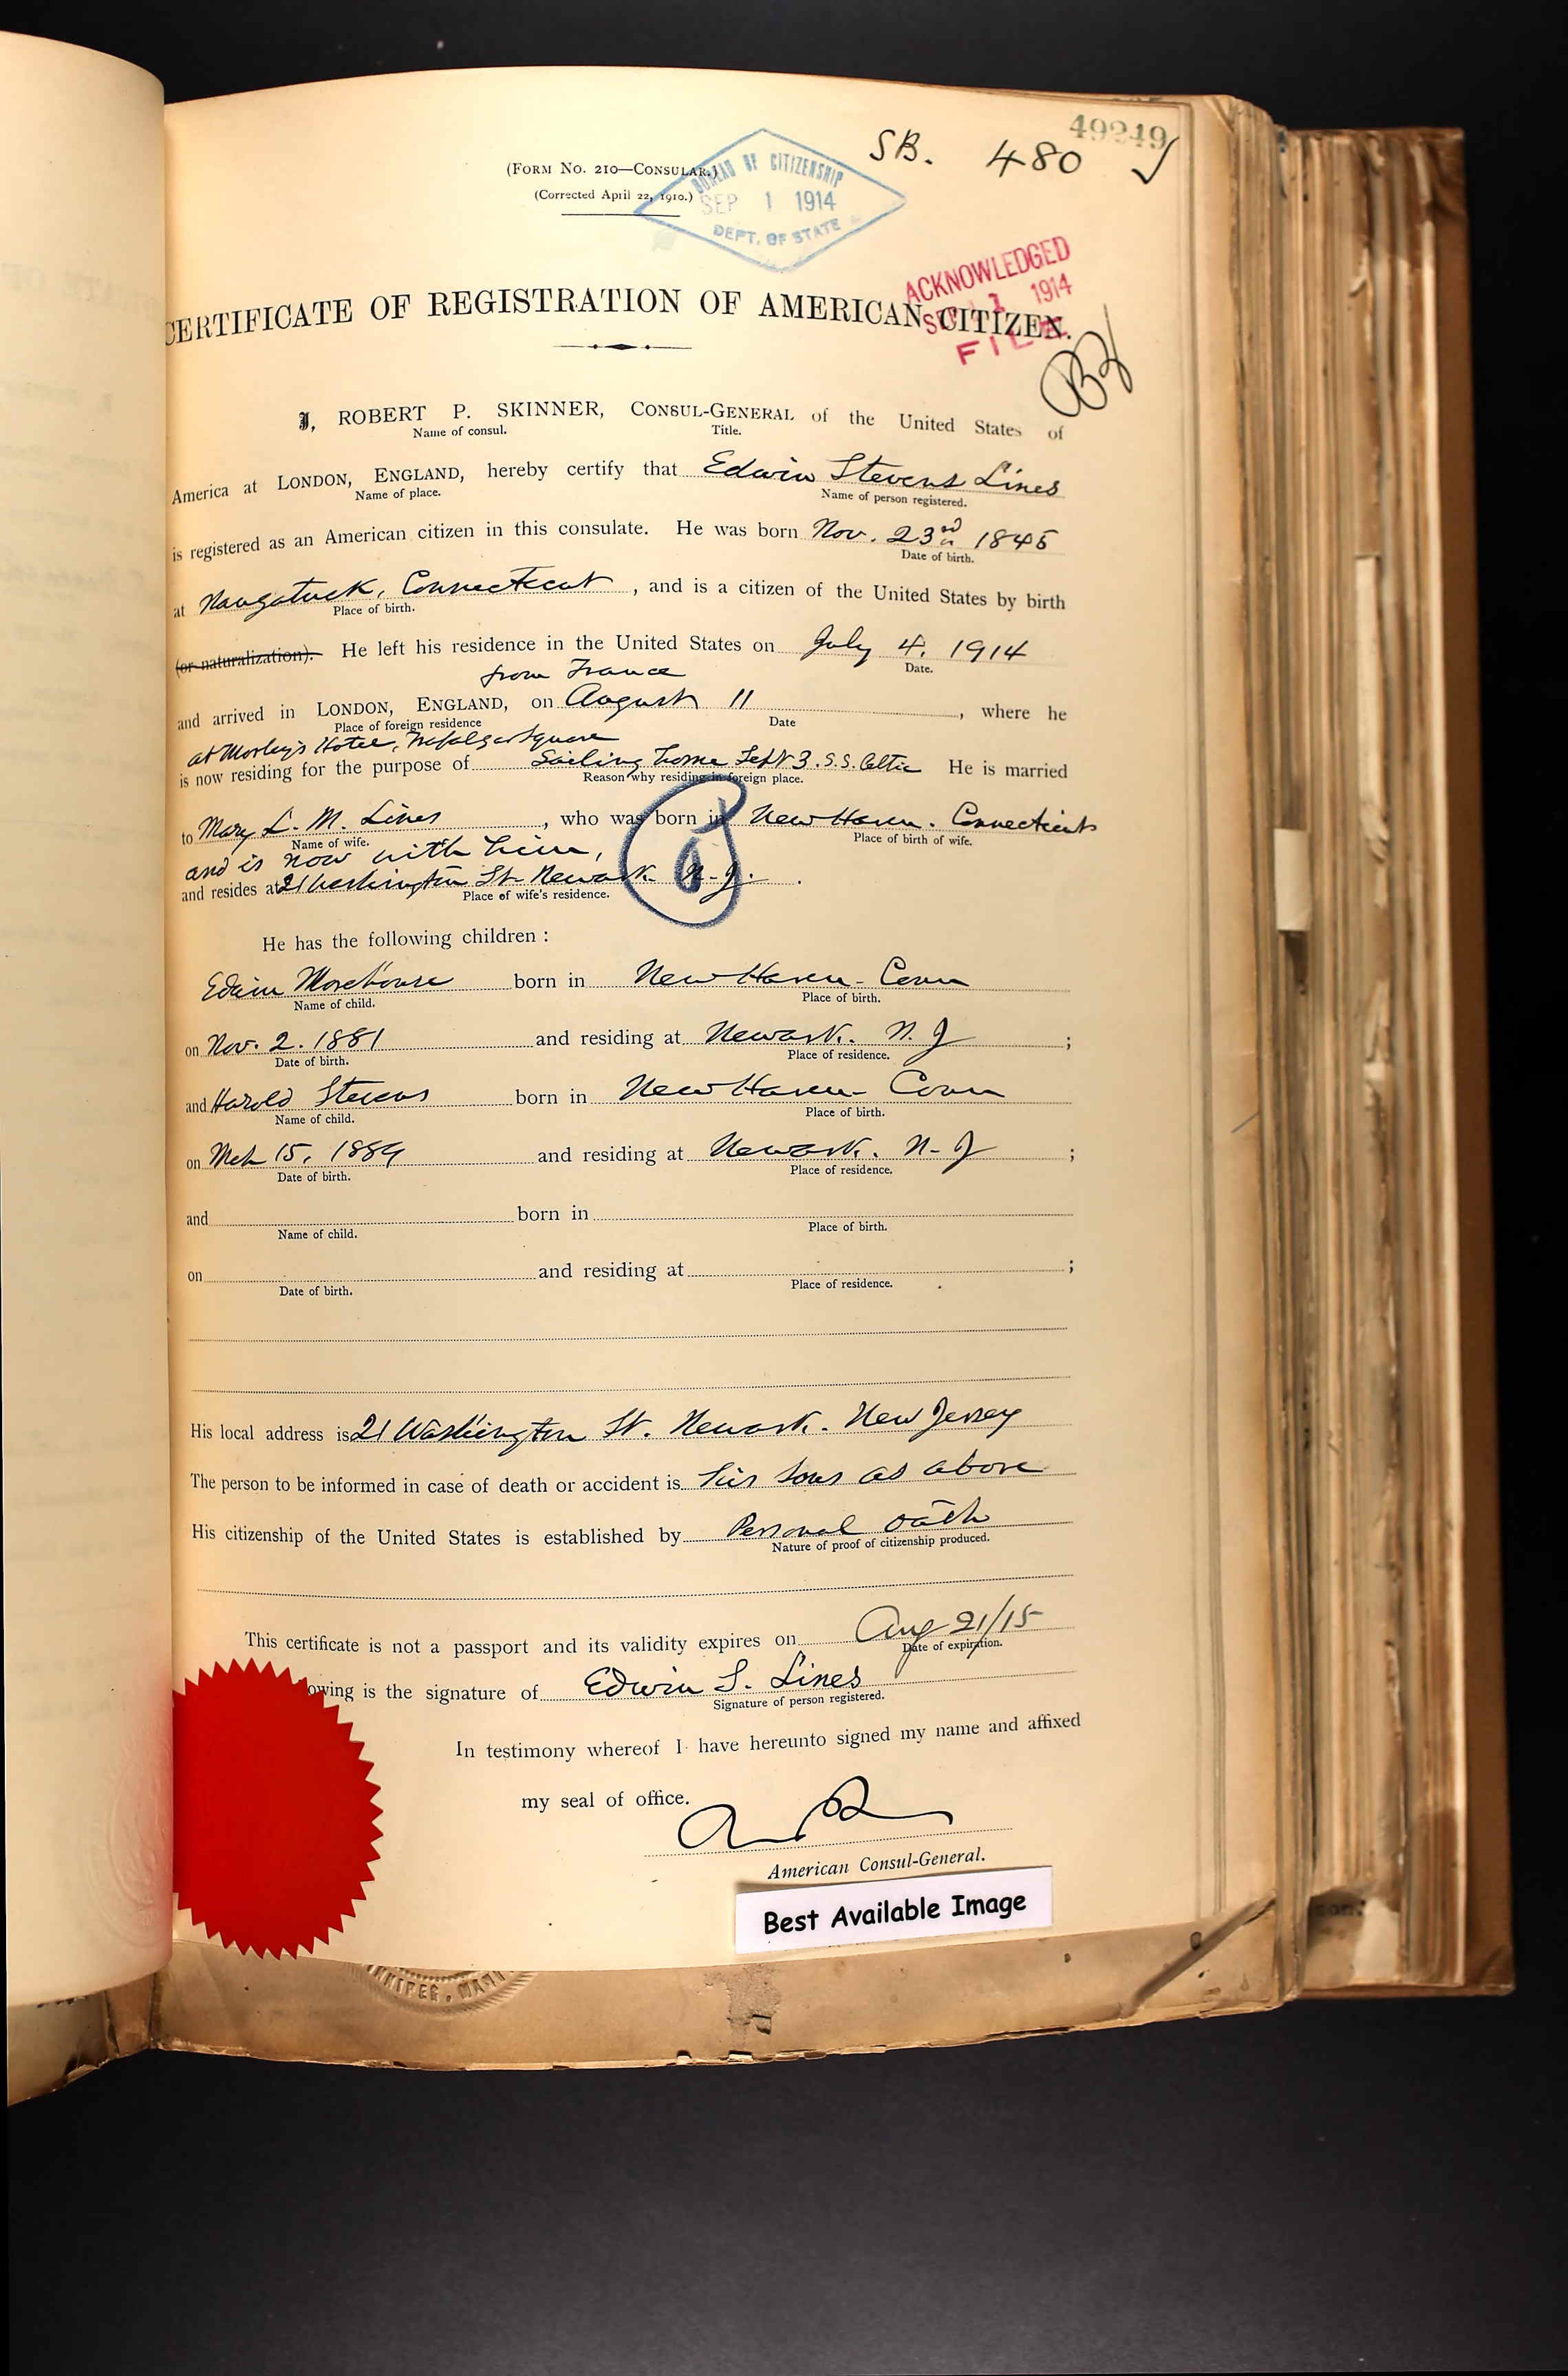 49249
SB. 480 ✓
(FORM No. 210—CONSULAR.)
(Corrected April 22, 1910.)
BUREAU OF CITIZENSHIP
SEP 1 1914
DEPT. OF STATE
ACKNOWLEDGED
1914
CERTIFICATE OF REGISTRATION OF AMERICAN CITIZEN.
I, ROBERT P. SKINNER, CONSUL-GENERAL of the United States of
Name of consul. Title.
America at LONDON, ENGLAND, hereby certify that Edwin Stevens Lines
Name of place. Name of person registered.
is registered as an American citizen in this consulate. He was born Nov. 23rd 1845
Date of birth.
at Naugatuck, Connecticut, and is a citizen of the United States by birth
Place of birth.
(or naturalization). He left his residence in the United States on July 4, 1914
Date.
from France
and arrived in LONDON, ENGLAND, on August 11, where he
Place of foreign residence Date
at Morley's Hotel, Trafalgar Square
is now residing for the purpose of Sailing home Sept 3. S.S. Celtic He is married
Reason why residing in foreign place.
to Mary L. M. Lines, who was born in New Haven. Connecticut
Name of wife. Place of birth of wife.
and is now with him,
and resides at 21 Washington St. Newark N.J.
Place of wife's residence.
He has the following children :
Edwin Morehouse born in New Haven- Conn
Name of child. Place of birth.
on Nov. 2. 1881 and residing at Newark. N. J ;
Date of birth. Place of residence.
and Harold Stevens born in New Haven- Conn
Name of child. Place of birth.
on Mch 15, 1884 and residing at Newark. N-J ;
Date of birth. Place of residence.
and born in
Name of child. Place of birth.
on and residing at ;
Date of birth. Place of residence.
His local address is 21 Washington St. Newark. New Jersey
The person to be informed in case of death or accident is his sons as above
His citizenship of the United States is established by Personal oath
Nature of proof of citizenship produced.
This certificate is not a passport and its validity expires on Aug 21/15
Date of expiration.
owing is the signature of Edwin S. Lines
Signature of person registered.
In testimony whereof I have hereunto signed my name and affixed
my seal of office.
American Consul-General.
Best Available Image